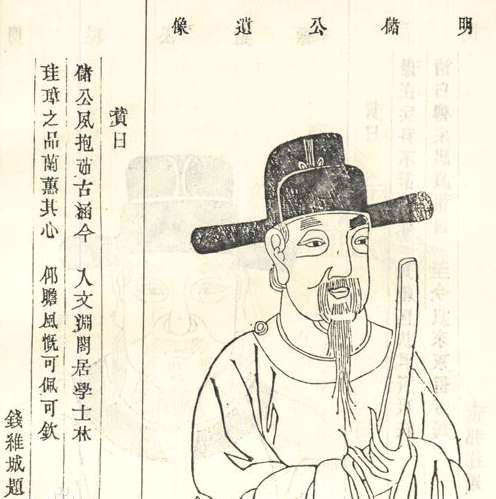 明儲公遺像
贊曰
儲公風抱茹古涵今 入文淵閣居學士林
珪璋之品蘭薰其心 仰瞻風慨可佩可欽
錢維城題